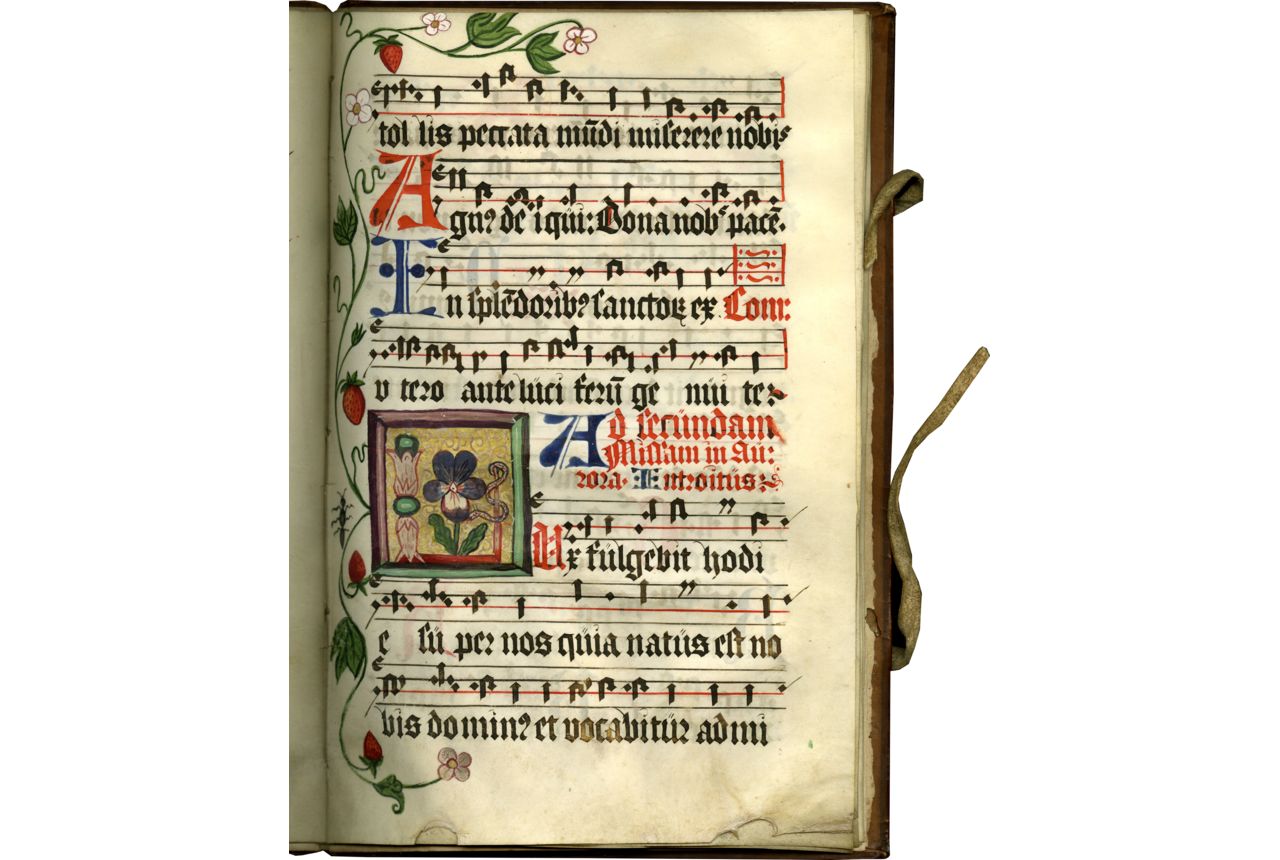 tol lis peccata mūdi miserere nobis
Agnꝰ dē i qui: Dona nobˢ pacē.
In splēdoribꝰ sanctoꝝ ex Com:
v tero ante luci ferū ge nui te:
Ad secundam
Missam in Au:
rora. Introitus:
Lux fulgebit hodi
e su per nos quia natus est no
bis dominꝰ et vocabitur admi